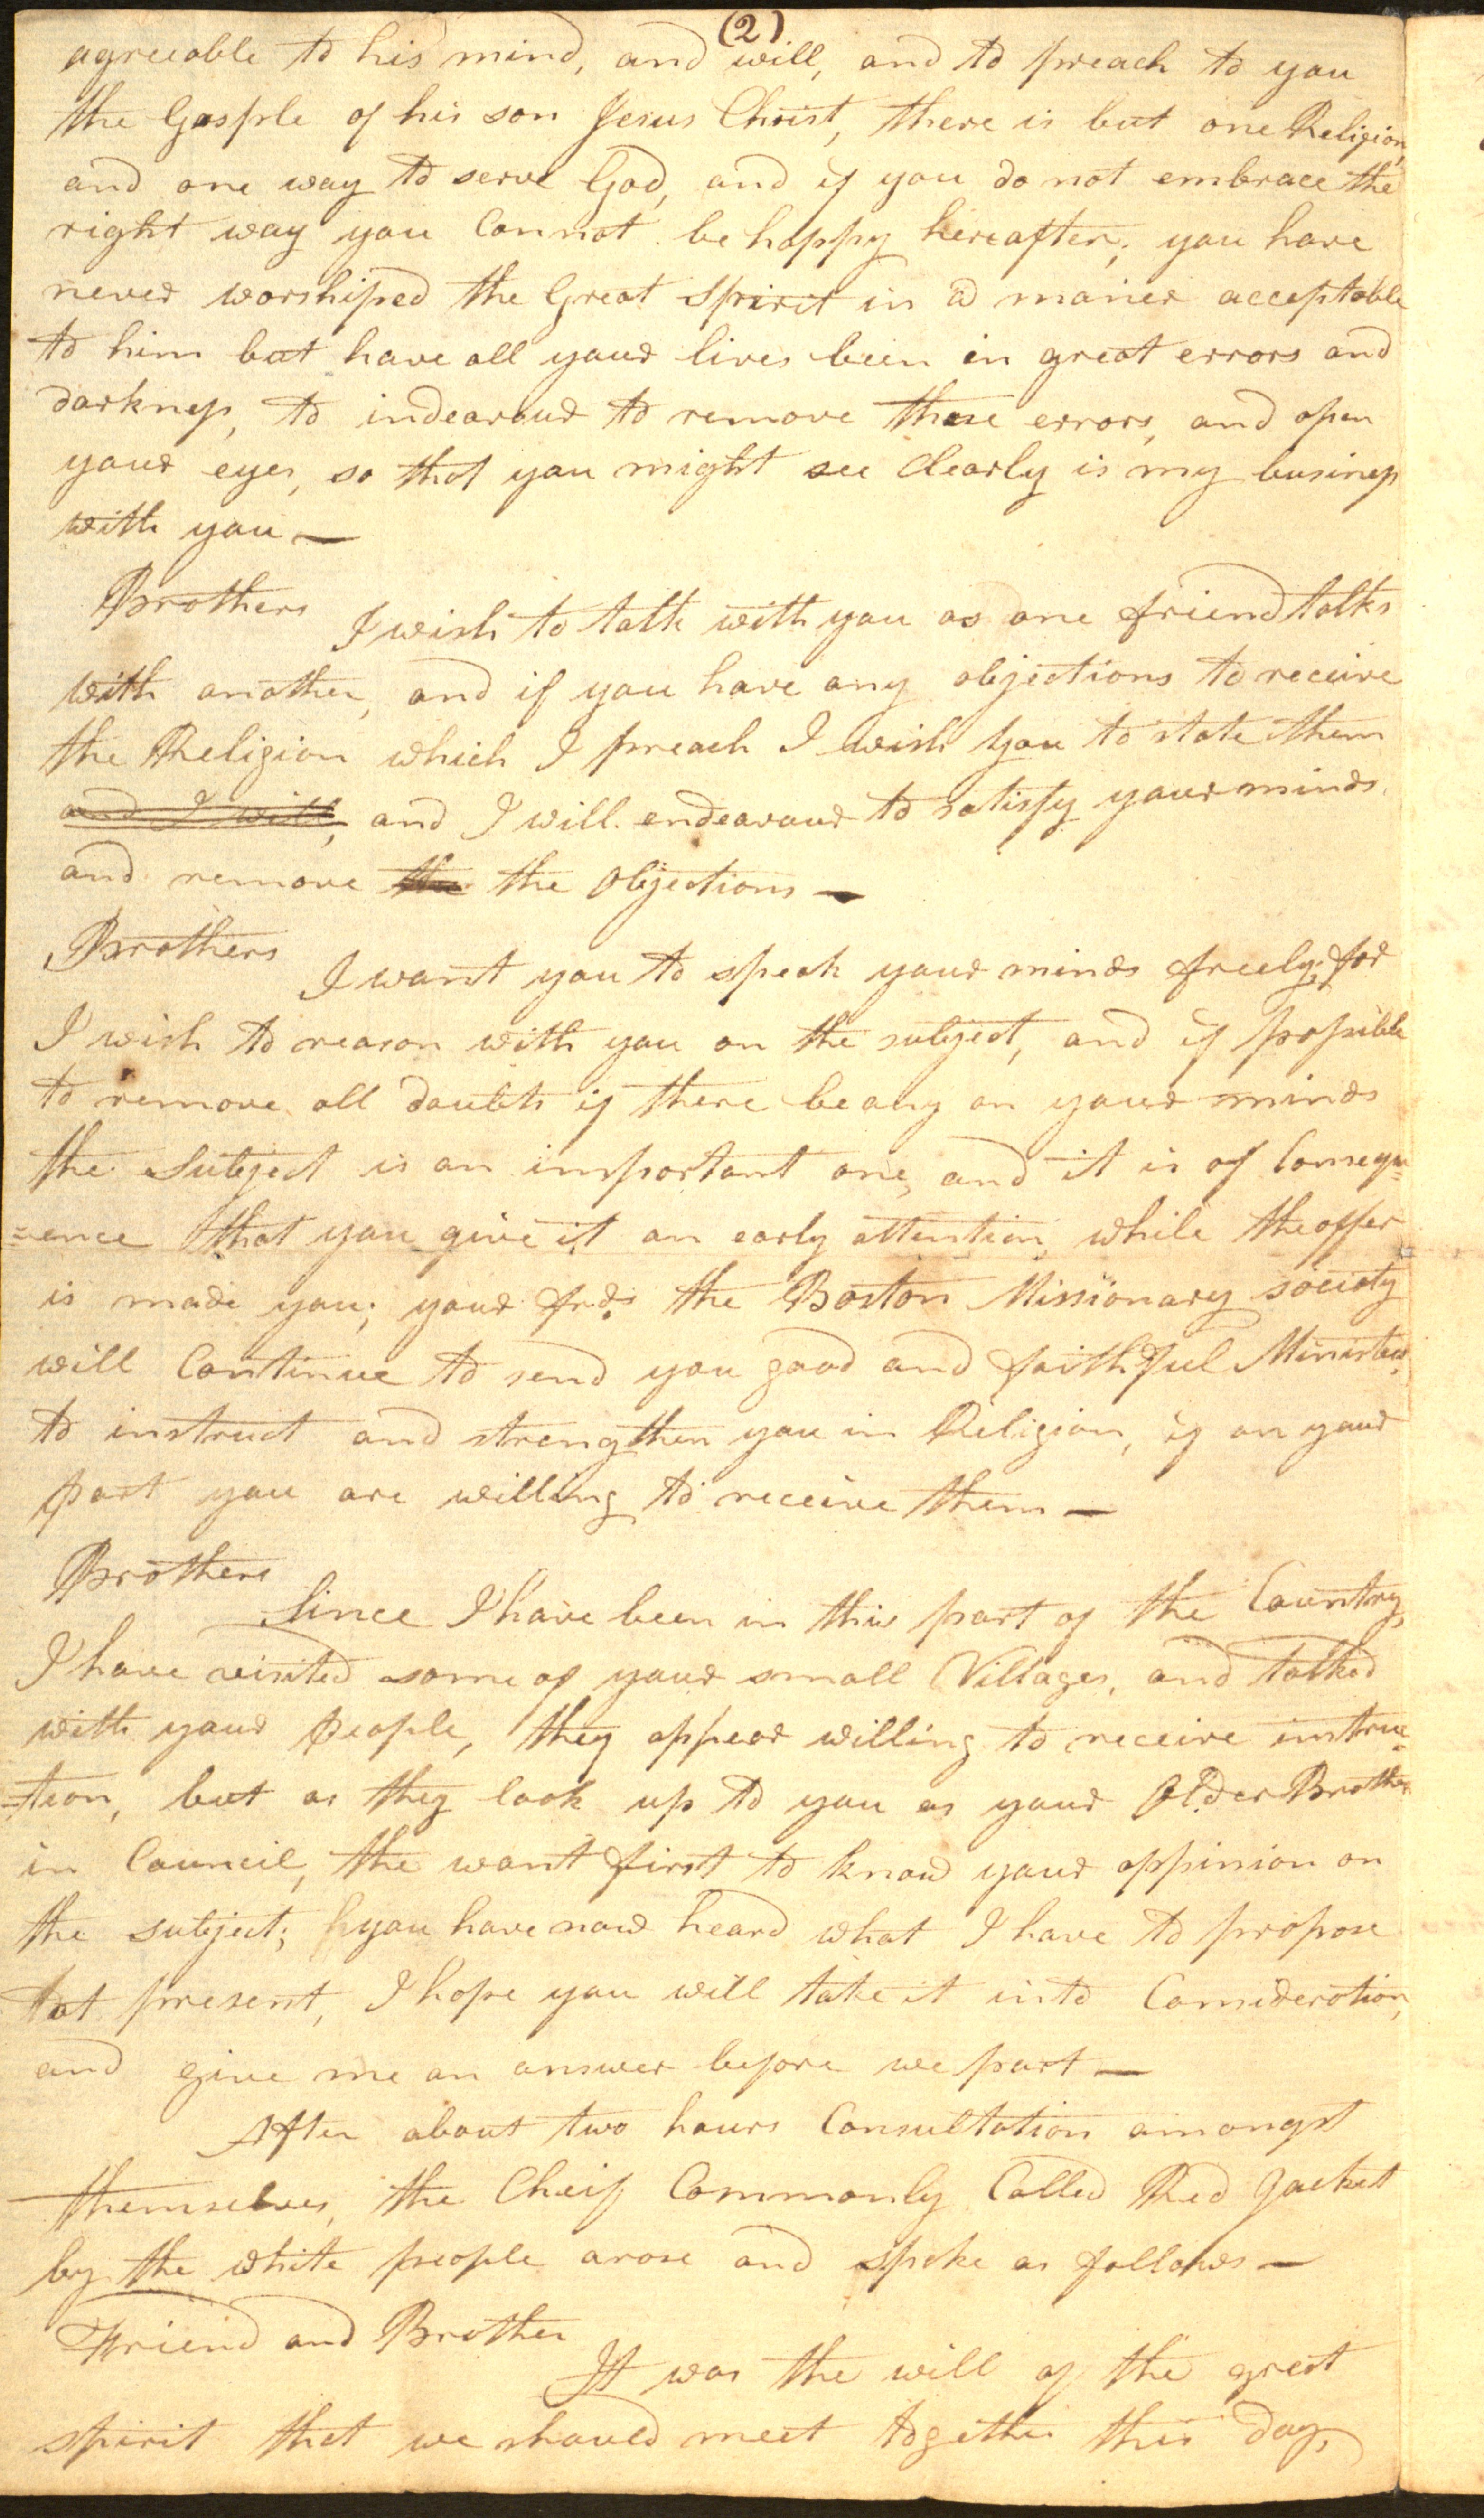 (2)
agreeable to his mind, and will, and to preach to you
the Gosple of his son Jesus Christ, there is but one Religion,
and one way to serve God, and if you do not embrace the
right way you Connot be happy hereafter; you have
never worshiped the Great Spirit in a maner acceptable
to him but have all your lives been in great errors and
darkness, to indeavour to remove these errors, and open
your eyes, so that you might see Clearly is my business
with you —
Brothers
I wish to talk with you as one friend talks
with another, and if you have any objections to receive
the Religion which I preach I wish you to state them
and I will, and I will endeavour to satisfy your minds
and remove the the Objections —
Brothers
I want you to speak your minds freely; for
I wish to reason with you on the subject, and if possible
to remove all doubts if there be any on your minds
the Subject is an important one, and it is of Consequ=
=ence that you give it an early attention while the offer
is made you; your frds. the Boston Missionary society
will Continue to send you good and faithful Ministers,
to instruct and strengthen you in Religion, if on your
part you are willing to receive them —
Brothers
Since I have been in this part of the Country,
I have visited some of your small Villages, and talked
with your people, they appear willing to receive instruc=
=tion, but as they look up to you as your Older Brother
in Council, the want first to know your oppinion on
the subject; you have now heard what I have to propose
at present, I hope you will take it into Consideration,
and give me an answer before we part —
After about two hours Consultation amongst
themselves, the Cheif Commonly Called Red Jacket
by the white people arose and spoke as follows —
Friend and Brother
It was the will of the great
spirit that we should meet together this day,